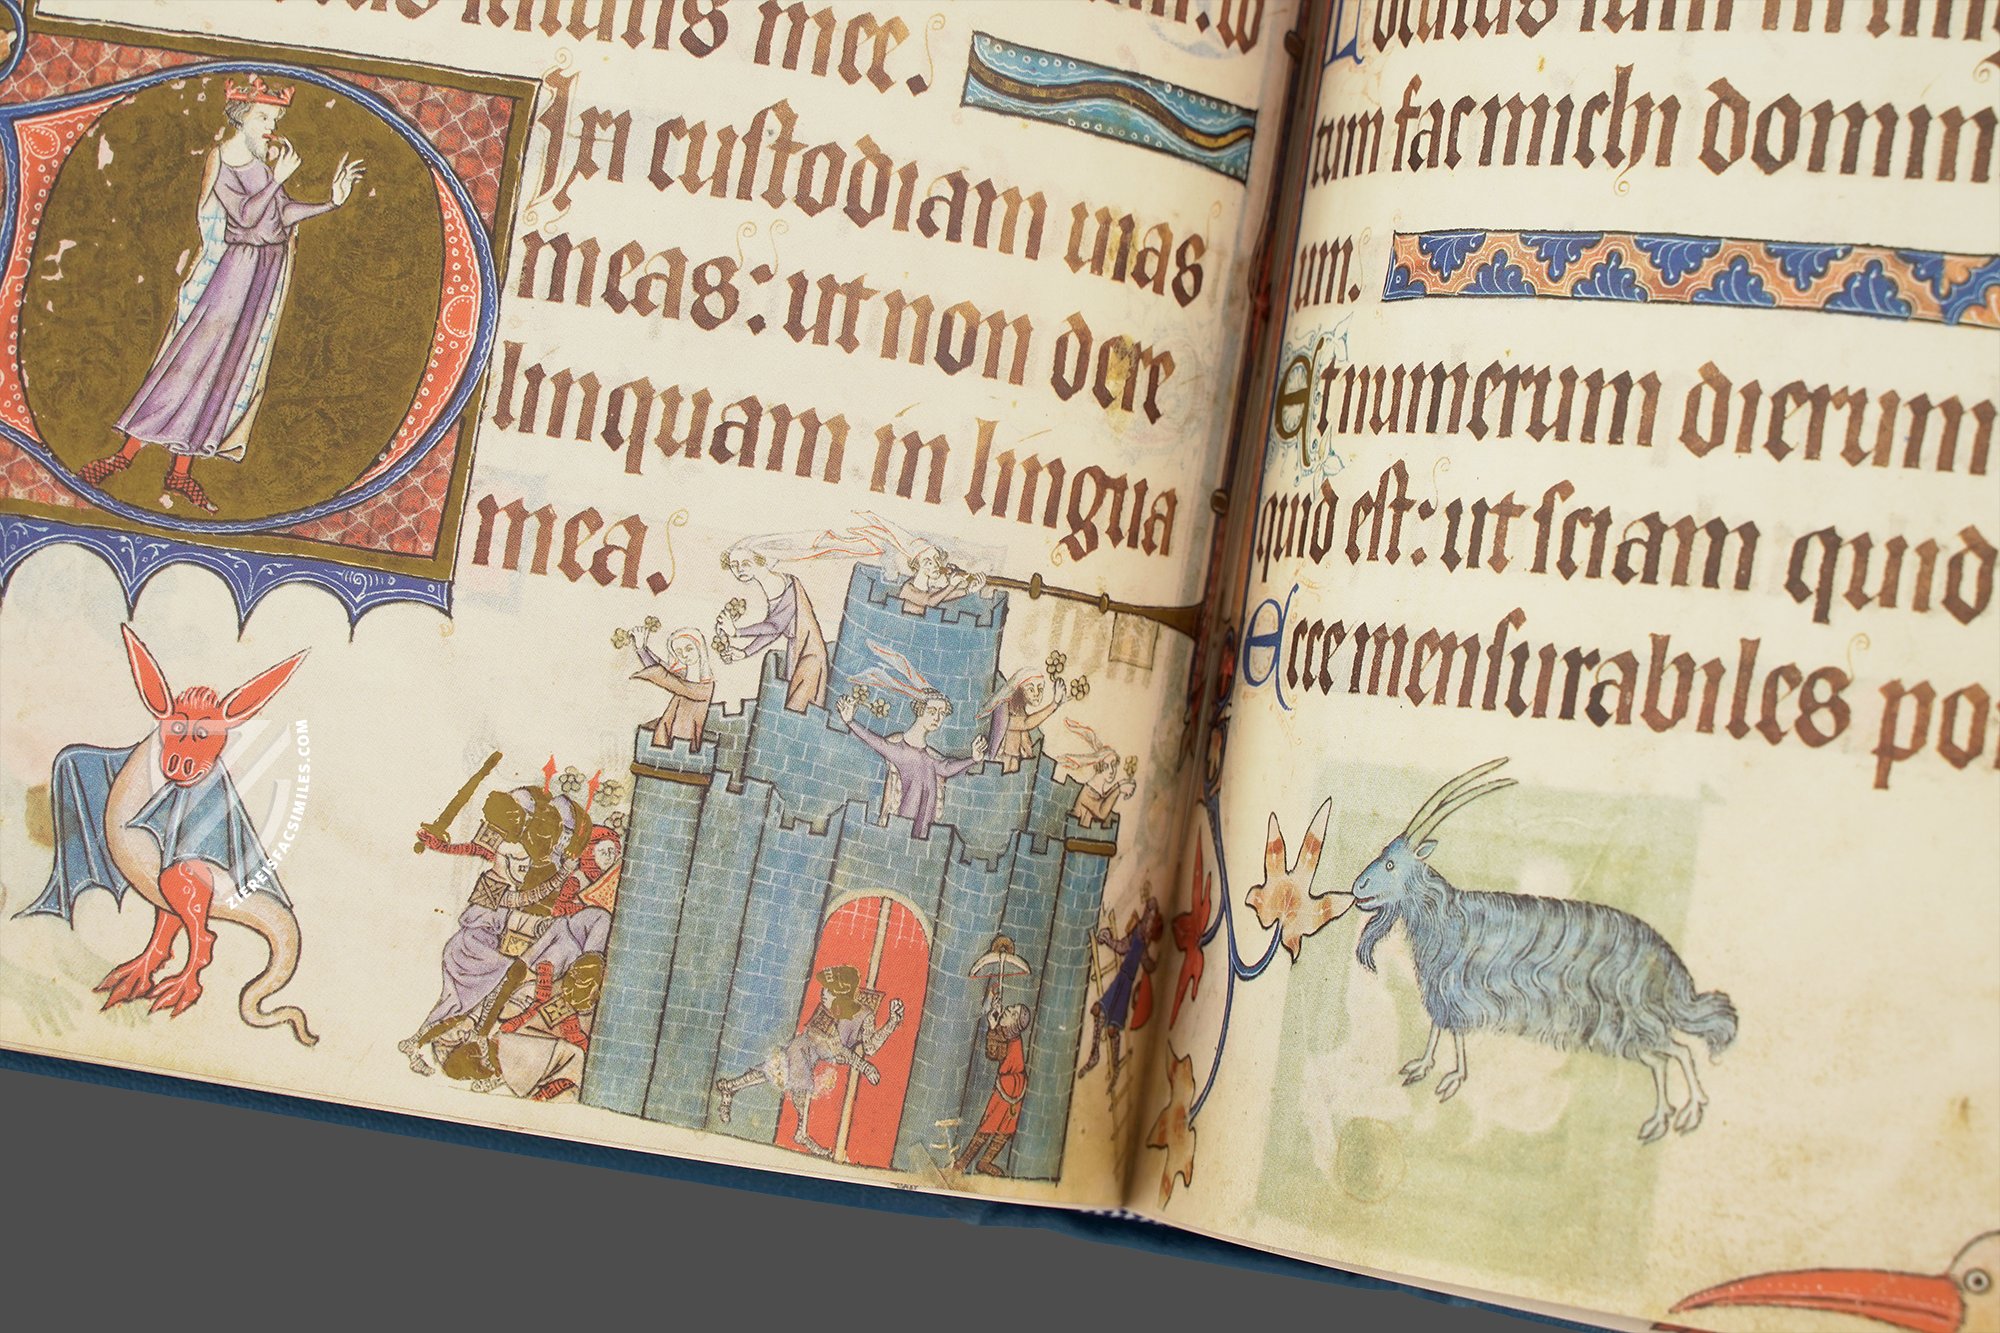 mee.
Dixi custodiam uias
meas: ut non dere
linquam in lingua
mea.
rum fac michi domin
um.
Et numerum dierum
quid est: ut sciam quid
Ecce mensurabiles po
ZIEREISFACSIMILES.COM